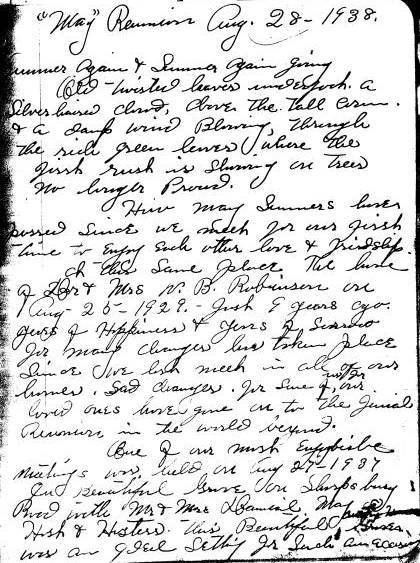 "May" Reunion Aug. 28 - 1938.
Summer Again & Summer Again going
Old twisted leaves underfoot. a
Silver lined cloud, above the tall corn.
& a damp wind Blowing, through
the rich green leaves where the
first rush is showing on trees
no longer Proud.
How many Summers have
passed Since we meet for our first
time to Enjoy Each other love & friendship.
at this Same place. The home
of Mrs N. B. Robinson on
Aug - 25 - 1929. - Just 9 years ago.
years of Happiness & years of Sorrow
for many changes have taken place
Since we last meet in all of our
homes. Sad changes. for Some of our
loved ones have gone on to the
Reunion in the world beyond.
One of our most Enjoyable
Meetings was held on Aug 27 - 1937
In Beautiful Grove on Sharpsburg
Road with Mr & Mrs Daniel May
Host & Hostess. This Beautiful
was an Ideal Setting for Such an occasion